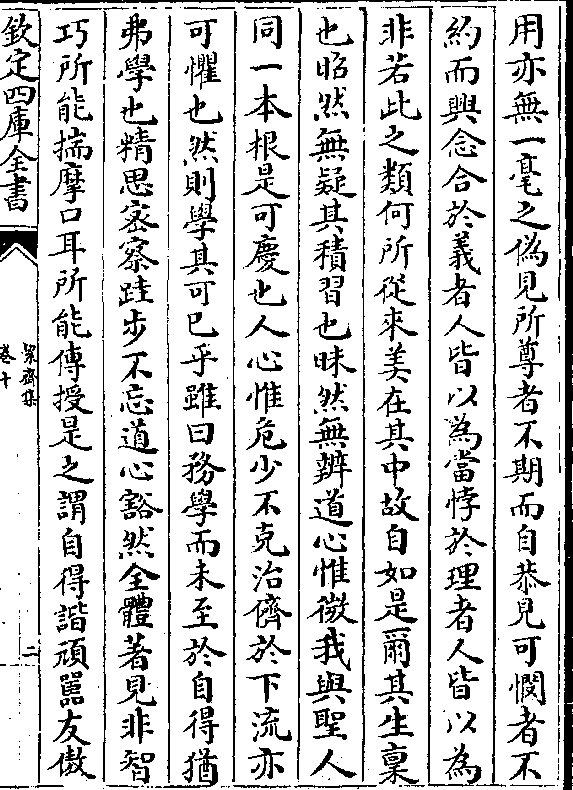 用亦無一毫之僞見所尊者不期而自恭見可憫者不
約而興念合於義者人皆以為當悖於理者人皆以為
非若此之類何所從來美在其中故自如是爾其生稟
也昭然無疑其積習也昧然無辨道心惟微我與聖人
同一本根是可慶也人心惟危少不克治儕於下流亦
可懼也然則學其可已乎雖曰務學而未至於自得猶
弗學也精思宻察跬步不忘道心豁然全體著見非智
巧所能揣摩口耳所能傳授是之謂自得諧頑嚚友傲
欽定四庫全書
絜齋集
卷十
二